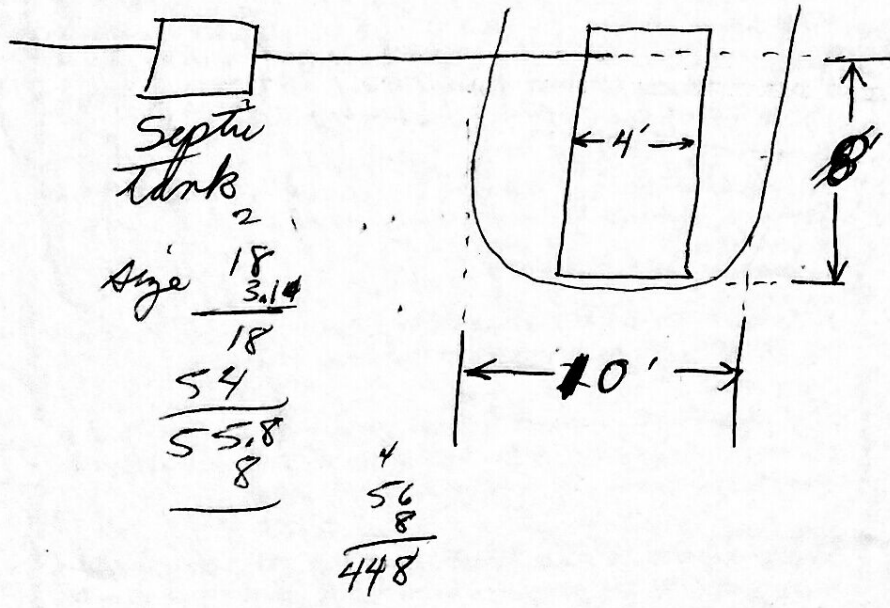 Septic
Tank
2
size 18
3.14
18
54
55.8
8
4
56
8
448
4'
8'
10'